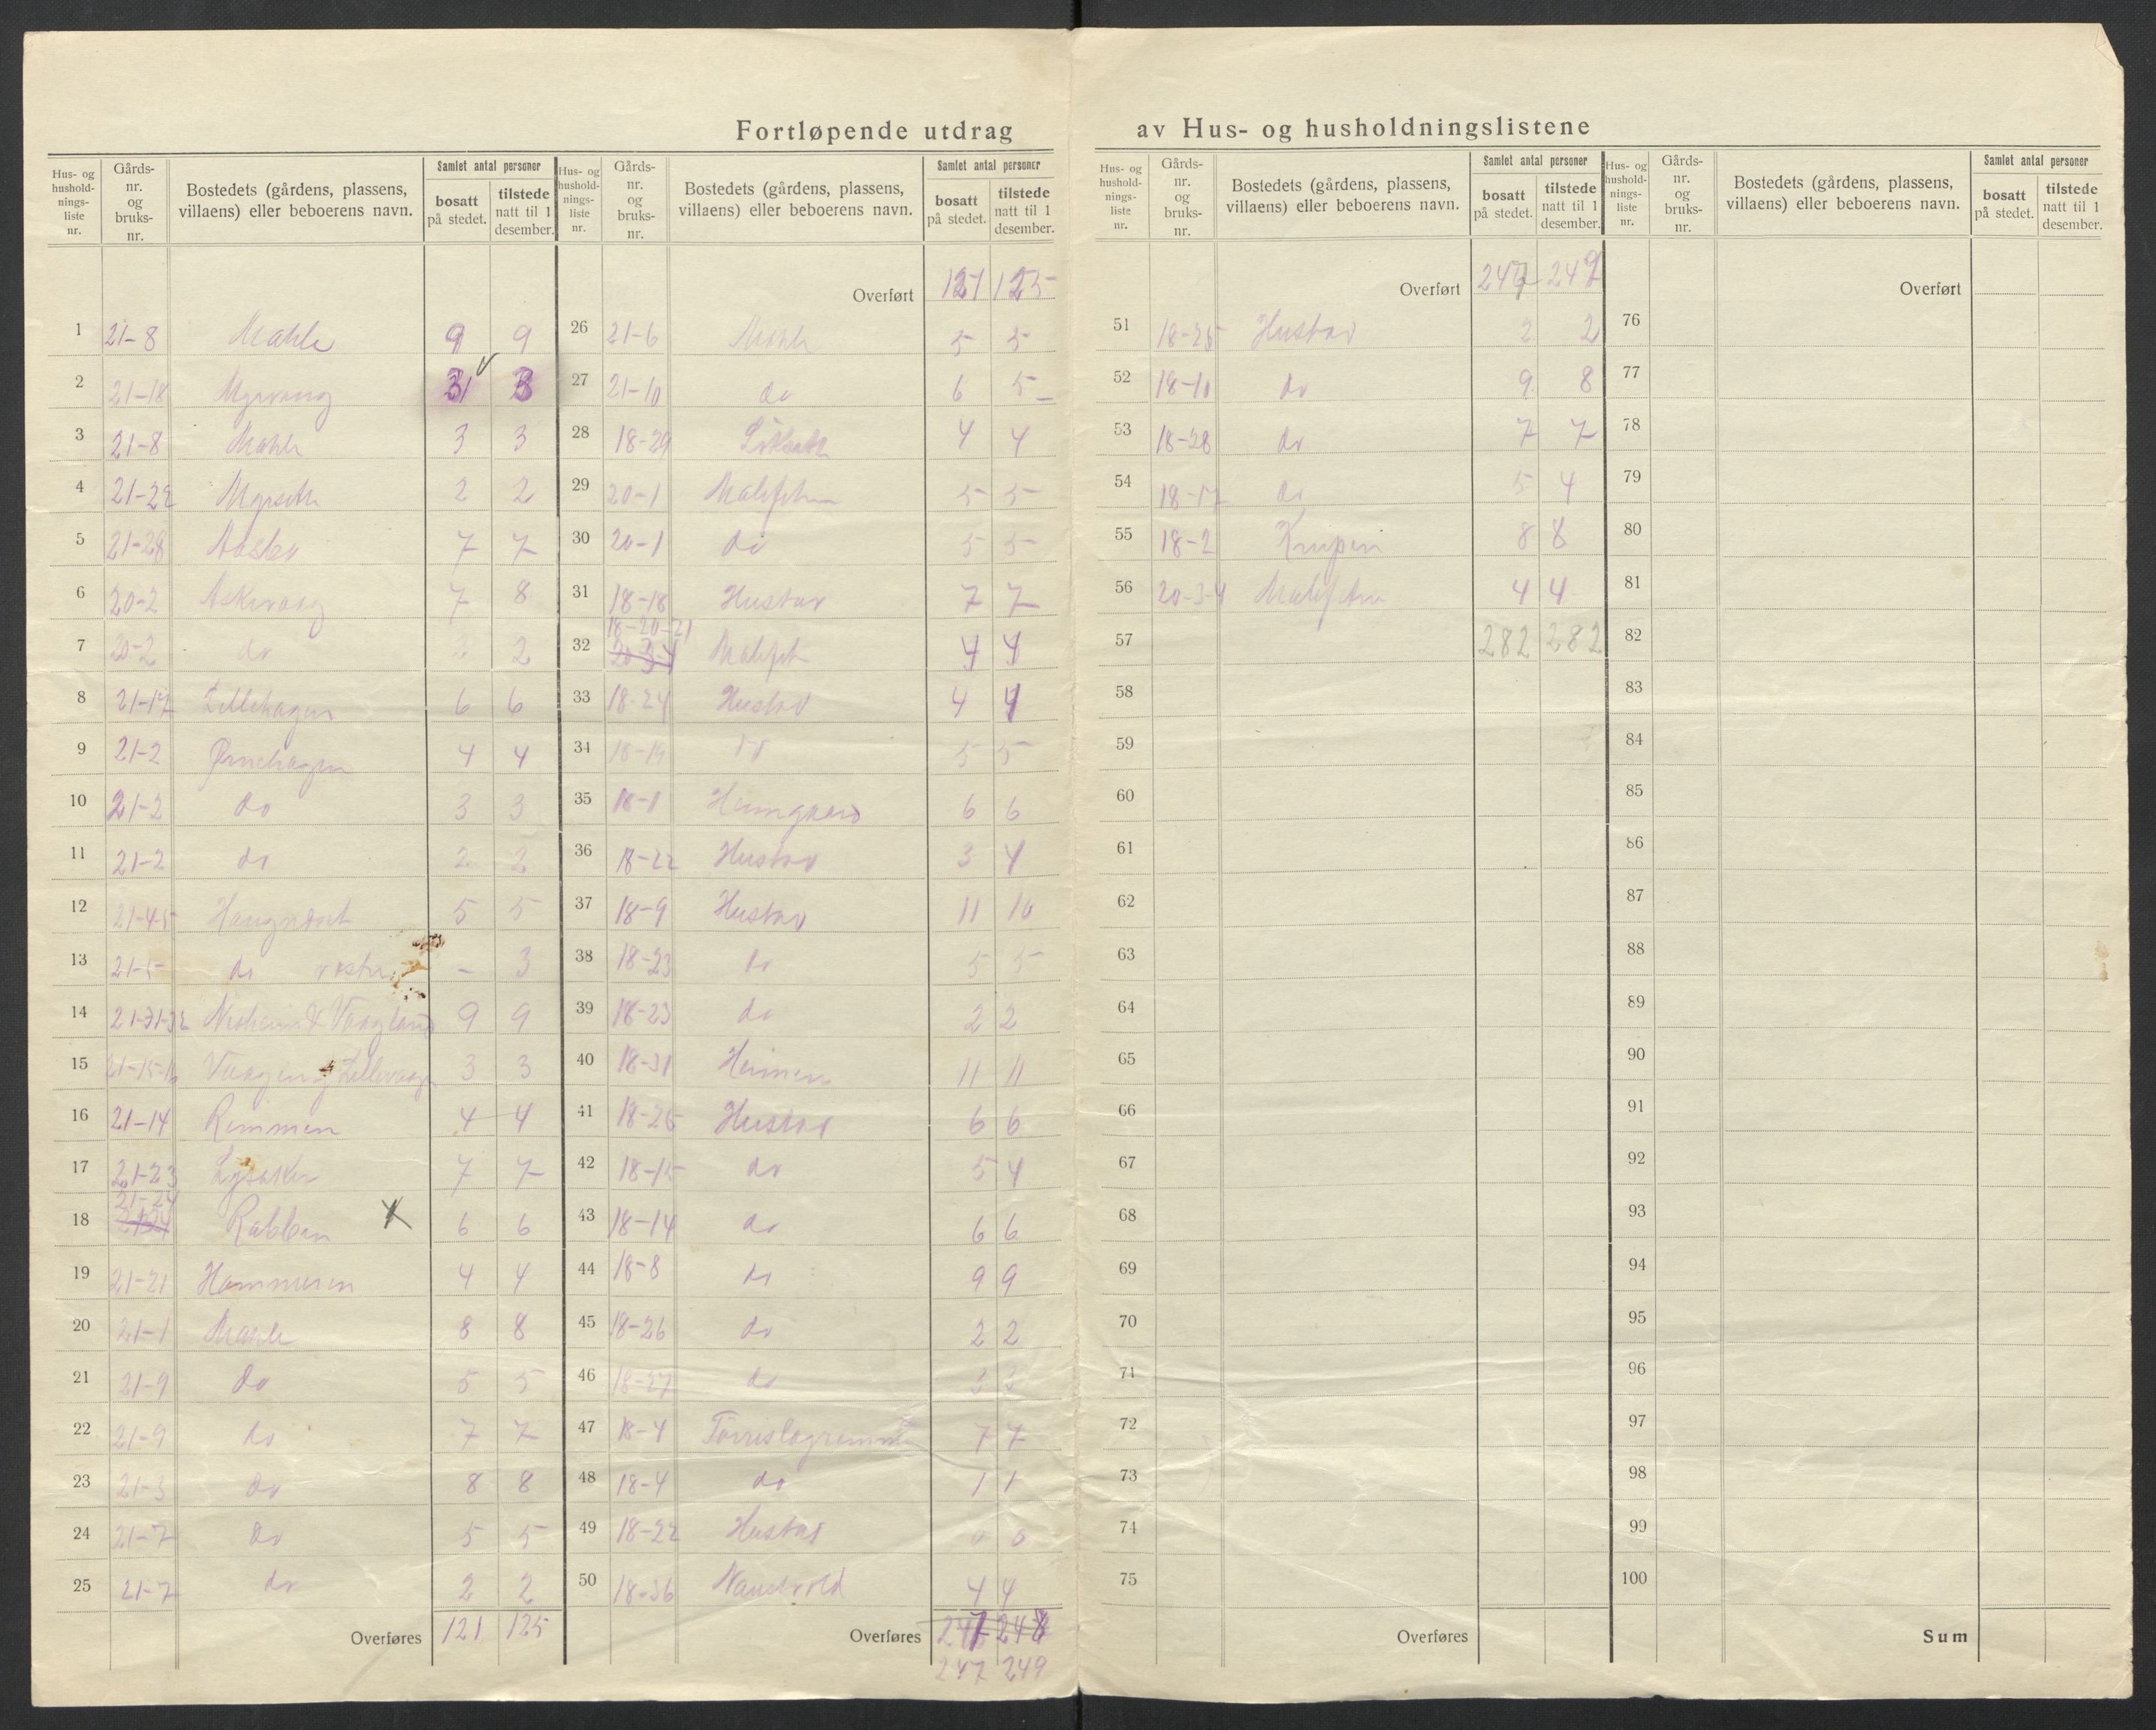 Fortløpende utdrag av Hus- og husholdningslistene
Hus- og hushold-nings-liste nr. | Gårds-nr. og bruks-nr. | Bostedets (gårdens, plassens, villaens) eller beboerens navn. | Samlet antal personer | bosatt på stedet. | tilstede natt til 1 desember.
1 21-8 Mahle 9 9
2 21-18 Myrvang 3 3
3 21-8 Mahle 3 3
4 21-22 Myrseth 2 2
5 21-28 7 7
6 20-2 Askevaag 7 8
7 20-2 do 2 2
8 21-17 Lillehagen 6 6
9 21-2 Ørnehagen 4 4
10 21-2 do 3 3
11 21-2 do 2 2
12 21-4-5 5 5
13 21-5 do - 3
14 21-31-32 Nesheim & Vaagland 9 9
15 21-15-16 Vaagen og Lillevaagen 3 3
16 21-14 Remmen 4 4
17 21-23 Lysaker 7 7
18 21-24 Rabben 6 6
19 21-21 Hammeren 4 4
20 21-1 Mahle 8 8
21 21-9 do 5 5
22 21-9 do 7 7
23 21-3 do 8 8
24 21-7 do 5 5
25 21-7 do 2 2
Overføres 121 125
Hus- og hushold-nings-liste nr. | Gårds-nr. og bruks-nr. | Bostedets (gårdens, plassens, villaens) eller beboerens navn. | Samlet antal personer | bosatt på stedet. | tilstede natt til 1 desember.
Overført 121 125
26 21-6 Mahle 5 5
27 21-10 do 6 5
28 18-29 4 4
29 20-1 5 5
30 20-1 do 5 5
31 18-18 Hustad 7 7
32 18-20-21 4 4
33 18-24 Hustad 4 4
34 18-19 do 5 5
35 18-1 Heimgaard 6 6
36 18-22 Hustad 3 4
37 18-9 Hustad 11 10
38 18-23 do 5 5
39 18-23 do 2 2
40 18-31 Heimen 11 11
41 18-25 Hustad 6 6
42 18-15 do 5 4
43 18-14 do 6 6
44 18-8 do 9 9
45 18-26 do 2 2
46 18-27 do 3 3
47 18-4 7 7
48 18-4 do 1 1
49 18-22 Hustad
50 18-36 4 4
Overføres 247 248
247 249
Hus- og hushold-nings-liste nr. | Gårds-nr. og bruks-nr. | Bostedets (gårdens, plassens, villaens) eller beboerens navn. | Samlet antal personer | bosatt på stedet. | tilstede natt til 1 desember.
Overført 247 249
51 18-25 Hustad 2 2
52 18-10 do 9 8
53 18-28 do 7 7
54 18-17 do 5 4
55 18-2 Knupen 8 8
56 20-3-4 4 4
57 282 282
58
59
60
61
62
63
64
65
66
67
68
69
70
71
72
73
74
75
Overføres
Hus- og hushold-nings-liste nr. | Gårds-nr. og bruks-nr. | Bostedets (gårdens, plassens, villaens) eller beboerens navn. | Samlet antal personer | bosatt på stedet. | tilstede natt til 1 desember.
Overført
76
77
78
79
80
81
82
83
84
85
86
87
88
89
90
91
92
93
94
95
96
97
98
99
100
Sum